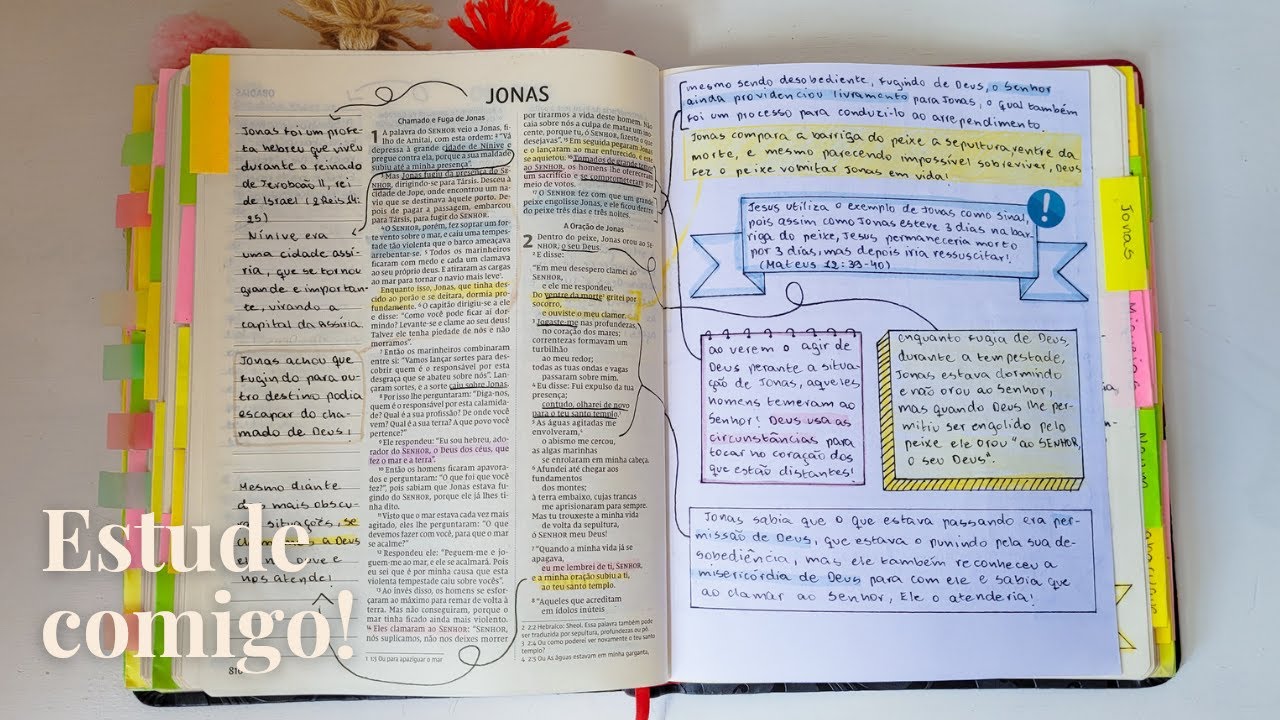 JONAS
Jonas foi um profe-
ta hebreu que viveu
durante o reinado
de Jeroboão II, rei
de Israel (2 Reis 14:
25)
Nínive era
uma cidade assí-
ria, que se tornou
grande e importan-
te, virando a
capital da Assíria
Jonas achou que
fugindo para ou-
tro destino podia
escapar do cha-
mado de Deus!
Mesmo diante
das mais obscu-
ras situações, se
a Deus
ouve e
nos atende!
Chamado e Fuga de Jonas
1 A palavra do SENHOR veio a Jonas, fi-
lho de Amitai, com esta ordem: ² “Vá
depressa à grande cidade de Nínive e
pregue contra ela, porque a sua maldade
subiu até a minha presença”.
³ Mas Jonas fugiu da presença do SE-
NHOR, dirigindo-se para Társis. Desceu à
cidade de Jope, onde encontrou um na-
vio que se destinava àquele porto. De-
pois de pagar a passagem, embarcou
para Társis, para fugir do SENHOR.
⁴ O SENHOR, porém, fez soprar um for-
te vento sobre o mar, e caiu uma tempes-
tade tão violenta que o barco ameaçava
arrebentar-se. ⁵ Todos os marinheiros
ficaram com medo e cada um clamava
ao seu próprio deus. E atiraram as cargas
ao mar para tornar o navio mais leve¹.
Enquanto isso, Jonas, que tinha des-
cido ao porão e se deitara, dormia pro-
fundamente. ⁶ O capitão dirigiu-se a ele
e disse: “Como você pode ficar aí dor-
mindo? Levante-se e clame ao seu deus!
Talvez ele tenha piedade de nós e não
morramos”.
⁷ Então os marinheiros combinaram
entre si: “Vamos lançar sortes para des-
cobrir quem é o responsável por esta
desgraça que se abateu sobre nós”. Lan-
çaram sortes, e a sorte caiu sobre Jonas.
⁸ Por isso lhe perguntaram: “Diga-nos,
quem é o responsável por esta calamida-
de? Qual é a sua profissão? De onde você
vem? Qual é a sua terra? A que povo você
pertence?”
⁹ Ele respondeu: “Eu sou hebreu, ado-
rador do SENHOR, o Deus dos céus, que
fez o mar e a terra”.
¹⁰ Então os homens ficaram apavora-
dos e perguntaram: “O que foi que você
fez?”, pois sabiam que Jonas estava fu-
gindo do SENHOR, porque ele já lhes ti-
nha dito.
¹¹ Visto que o mar estava cada vez mais
agitado, eles lhe perguntaram: “O que
devemos fazer com você, para que o mar
se acalme?”
¹² Respondeu ele: “Peguem-me e jo-
guem-me ao mar, e ele se acalmará. Pois
eu sei que é por minha causa que esta
violenta tempestade caiu sobre vocês”.
¹³ Ao invés disso, os homens se esfor-
çaram ao máximo para remar de volta à
terra. Mas não conseguiram, porque o
mar tinha ficado ainda mais violento.
¹⁴ Eles clamaram ao SENHOR: “SENHOR,
nós suplicamos, não nos deixes morrer
1 1:5 Ou para apaziguar o mar
por tirarmos a vida deste homem. Não
caia sobre nós a culpa de matar um ino-
cente, porque tu, ó SENHOR, fizeste o que
desejavas”. ¹⁵ Em seguida pegaram Jonas
e o lançaram ao mar enfurecido, e este
se aquietou. ¹⁶ Tomados de grande temor
ao SENHOR, os homens lhe ofereceram
um sacrifício e se comprometeram por
meio de votos.
¹⁷ O SENHOR fez com que um grande
peixe engolisse Jonas, e ele ficou dentro
do peixe três dias e três noites.
A Oração de Jonas
2 Dentro do peixe, Jonas orou ao SE-
NHOR, o seu Deus. ² E disse:
“Em meu desespero clamei ao
SENHOR,
e ele me respondeu.
Do ventre da morte² gritei por
socorro,
e ouviste o meu clamor.
³ Jogaste-me nas profundezas,
no coração dos mares;
correntezas formavam um
turbilhão
ao meu redor;
todas as tuas ondas e vagas
passaram sobre mim.
⁴ Eu disse: Fui expulso da tua
presença;
contudo, olharei de novo
para o teu santo templo.³
⁵ As águas agitadas me
envolveram,⁴
o abismo me cercou,
as algas marinhas
se enrolaram em minha cabeça.
⁶ Afundei até chegar aos
fundamentos
dos montes;
à terra embaixo, cujas trancas
me aprisionaram para sempre.
Mas tu trouxeste a minha vida
de volta da sepultura,
ó SENHOR meu Deus!
⁷ “Quando a minha vida já se
apagava,
eu me lembrei de ti, SENHOR,
e a minha oração subiu a ti,
ao teu santo templo.
⁸ “Aqueles que acreditam
em ídolos inúteis
2 2:2 Hebraico: Sheol. Essa palavra também pode
ser traduzida por sepultura, profundezas ou pó
3 2:4 Ou como poderei ver novamente o teu santo
templo?
4 2:5 Ou As águas estavam em minha garganta,
mesmo sendo desobediente, fugindo de Deus, o Senhor
ainda providenciou livramento para Jonas, o qual também
foi um processo para conduzi-lo ao arrependimento.
Jonas compara a barriga do peixe a sepultura, ventre da
morte, e mesmo parecendo impossível sobreviver, Deus
fez o peixe volmitar Jonas em vida!
!
Jesus utiliza o exemplo de Jonas como sinal,
pois assim como Jonas esteve 3 dias na bar-
riga do peixe, Jesus permaneceria morto
por 3 dias, mas depois iria ressuscitar!
(Mateus 12:39-40)
ao verem o agir de
Deus perante a situa-
ção de Jonas, aqueles
homens temeram ao
Senhor! Deus usa as
circunstâncias para
tocar no coração dos
que estão distantes!
enquanto fugia de Deus,
durante a tempestade,
Jonas estava dormindo
e não orou ao Senhor,
mas quando Deus lhe per-
mitiu ser engolido pelo
peixe ele orou “ao SENHOR,
o seu Deus”.
Jonas sabia que o que estava passando era per-
missão de Deus, que estava o punindo pela sua de-
sobediência, mas ele também reconheceu a
misericórdia de Deus para com ele e sabia que
ao clamar ao Senhor, Ele o atenderia!
Jonas
Naum
Estude
comigo!